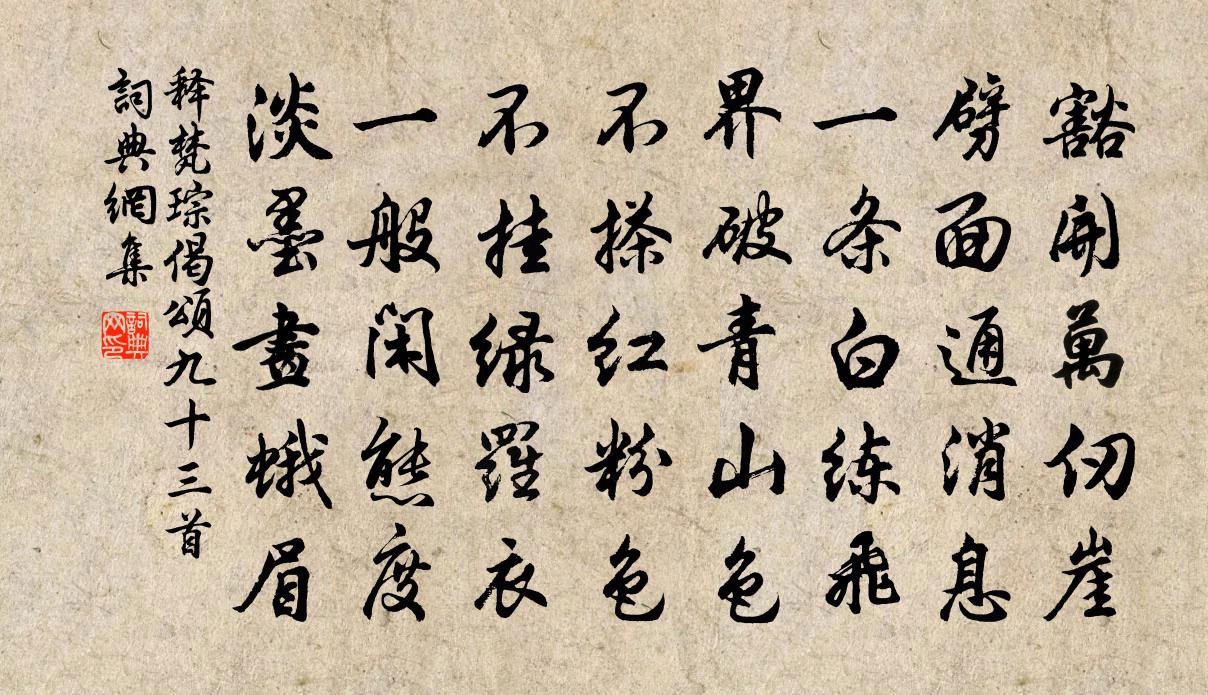 豁開萬仞崖
劈面通消息
一条白练飛
界破青山色
不搽红粉色
不挂绿羅衣
一般闲態度
淡墨畫蛾眉
释梵琮偈頌九十三首
詞典網集
詞典网印